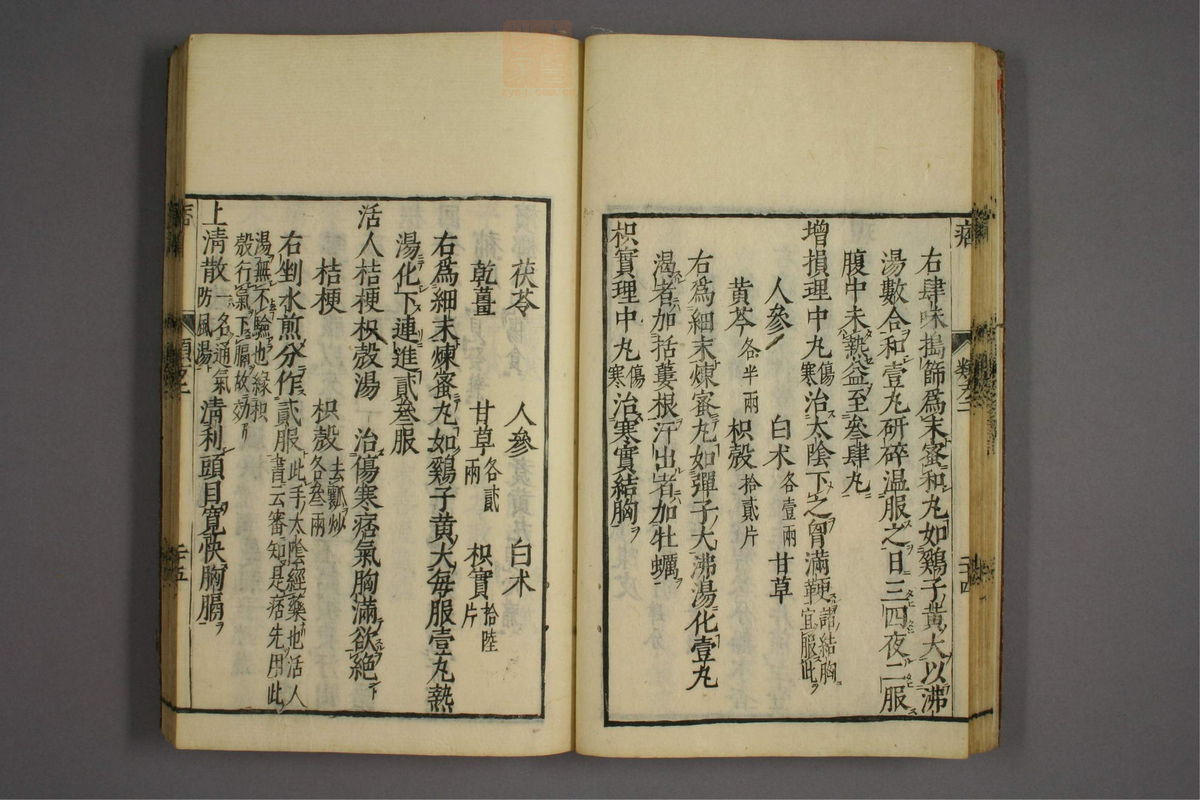 右肆味擣篩爲末蜜和丸如鷄子黃大以沸
湯數合和壹丸研碎温服之日三四夜二服
腹中未熱益至叁肆丸
增損理中丸傷寒治太陰下之胷滿鞕謂結胸宜服此
人參 白术各壹兩 甘草
黃芩各半兩 枳殼拾貳片
右爲細末煉蜜丸如彈子大沸湯化壹丸
渴者加括蔞根汗出者加牡蠣
枳實理中丸傷寒治寒實結胸
茯苓 人參 白术
乾薑 甘草各貳兩 枳實拾陸片
右爲細末煉蜜丸如鷄子黃大每服壹丸熱
湯化下連進貳叁服
活人桔梗枳殼湯 治傷寒痞氣胸滿欲絕
桔梗 枳殼去瓤炒各叁兩
右剉水煎分作貳服此手太陰經藥也活人書云審知是痞先用此
湯無不驗也緣枳殼行氣下膈故效
上清散一名通氣防風湯 清利頭目寬快胸膈